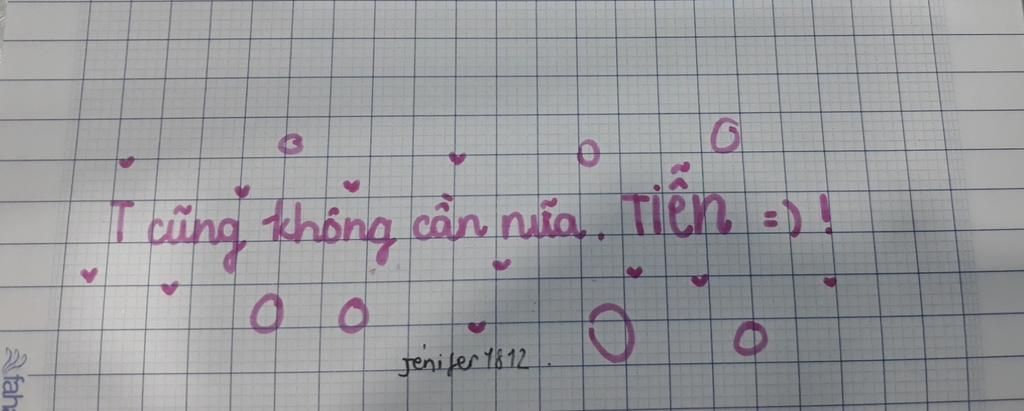 T cũng không cần nữa. Tiễn =) !
Jenifer1812.
fah